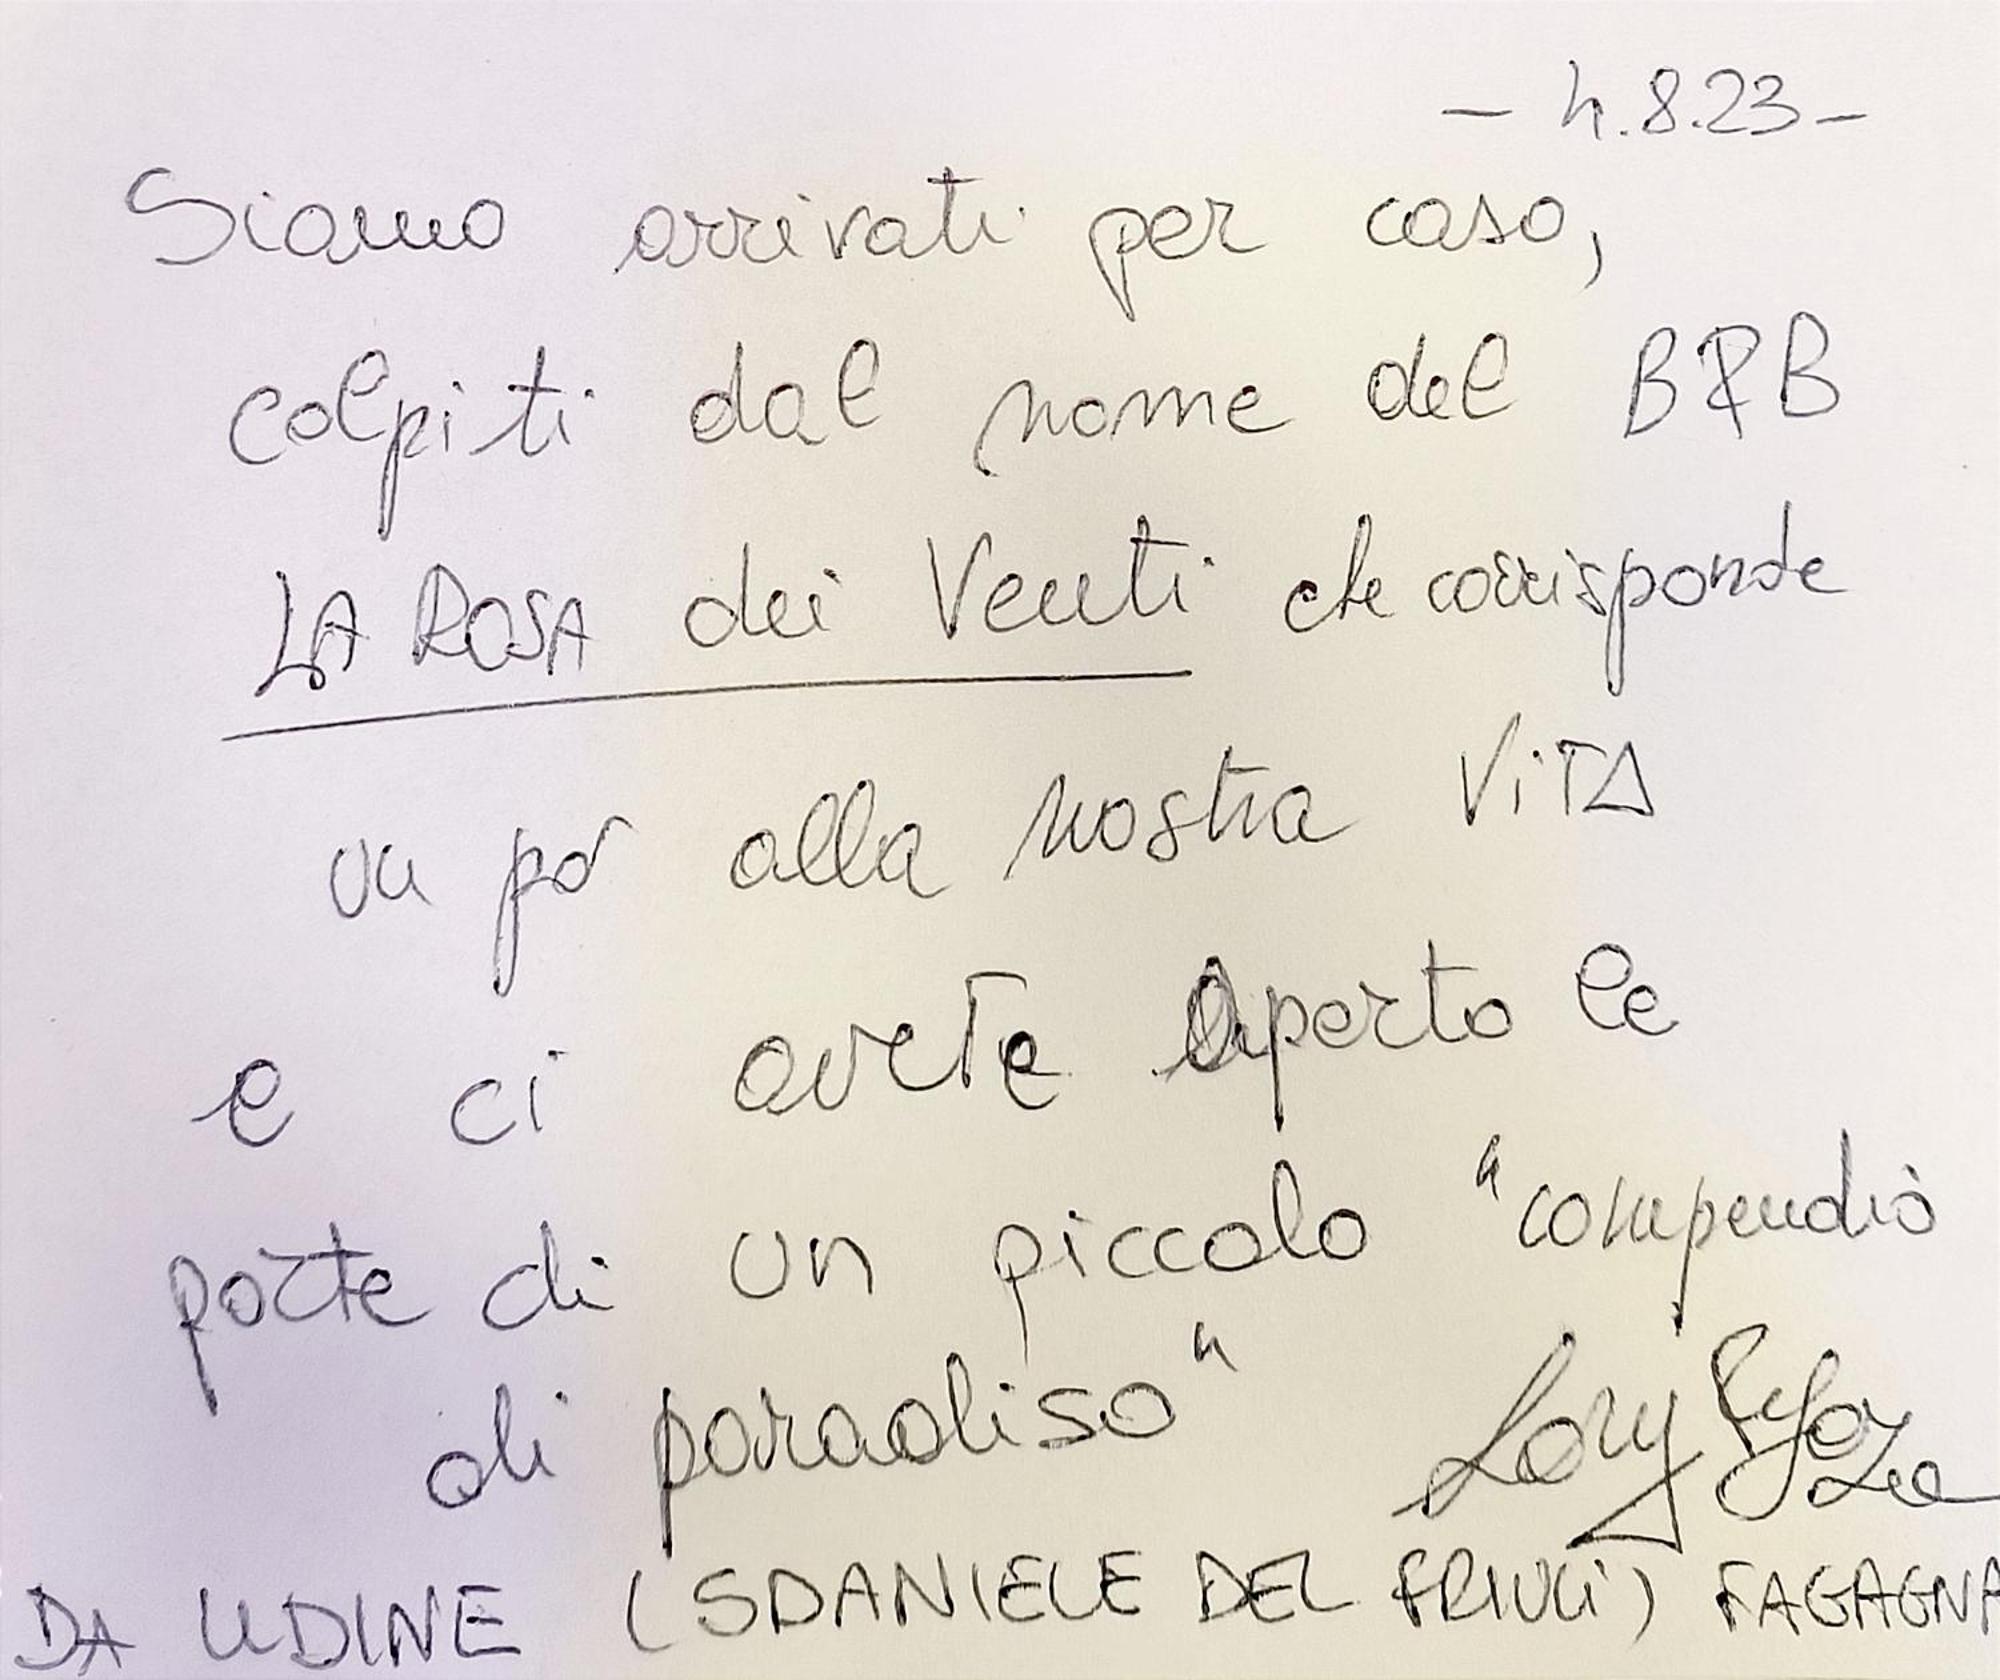 - 4.8.23 -
Siamo arrivati per caso,
colpiti dal nome del B&B
LA ROSA dei Venti che corrisponde
un po' alla nostra VITA
e ci avete aperto le
porte di un piccolo "compendio
di paradiso" Lory
DA UDINE (S DANIELE DEL FRIULI) FAGAGNA